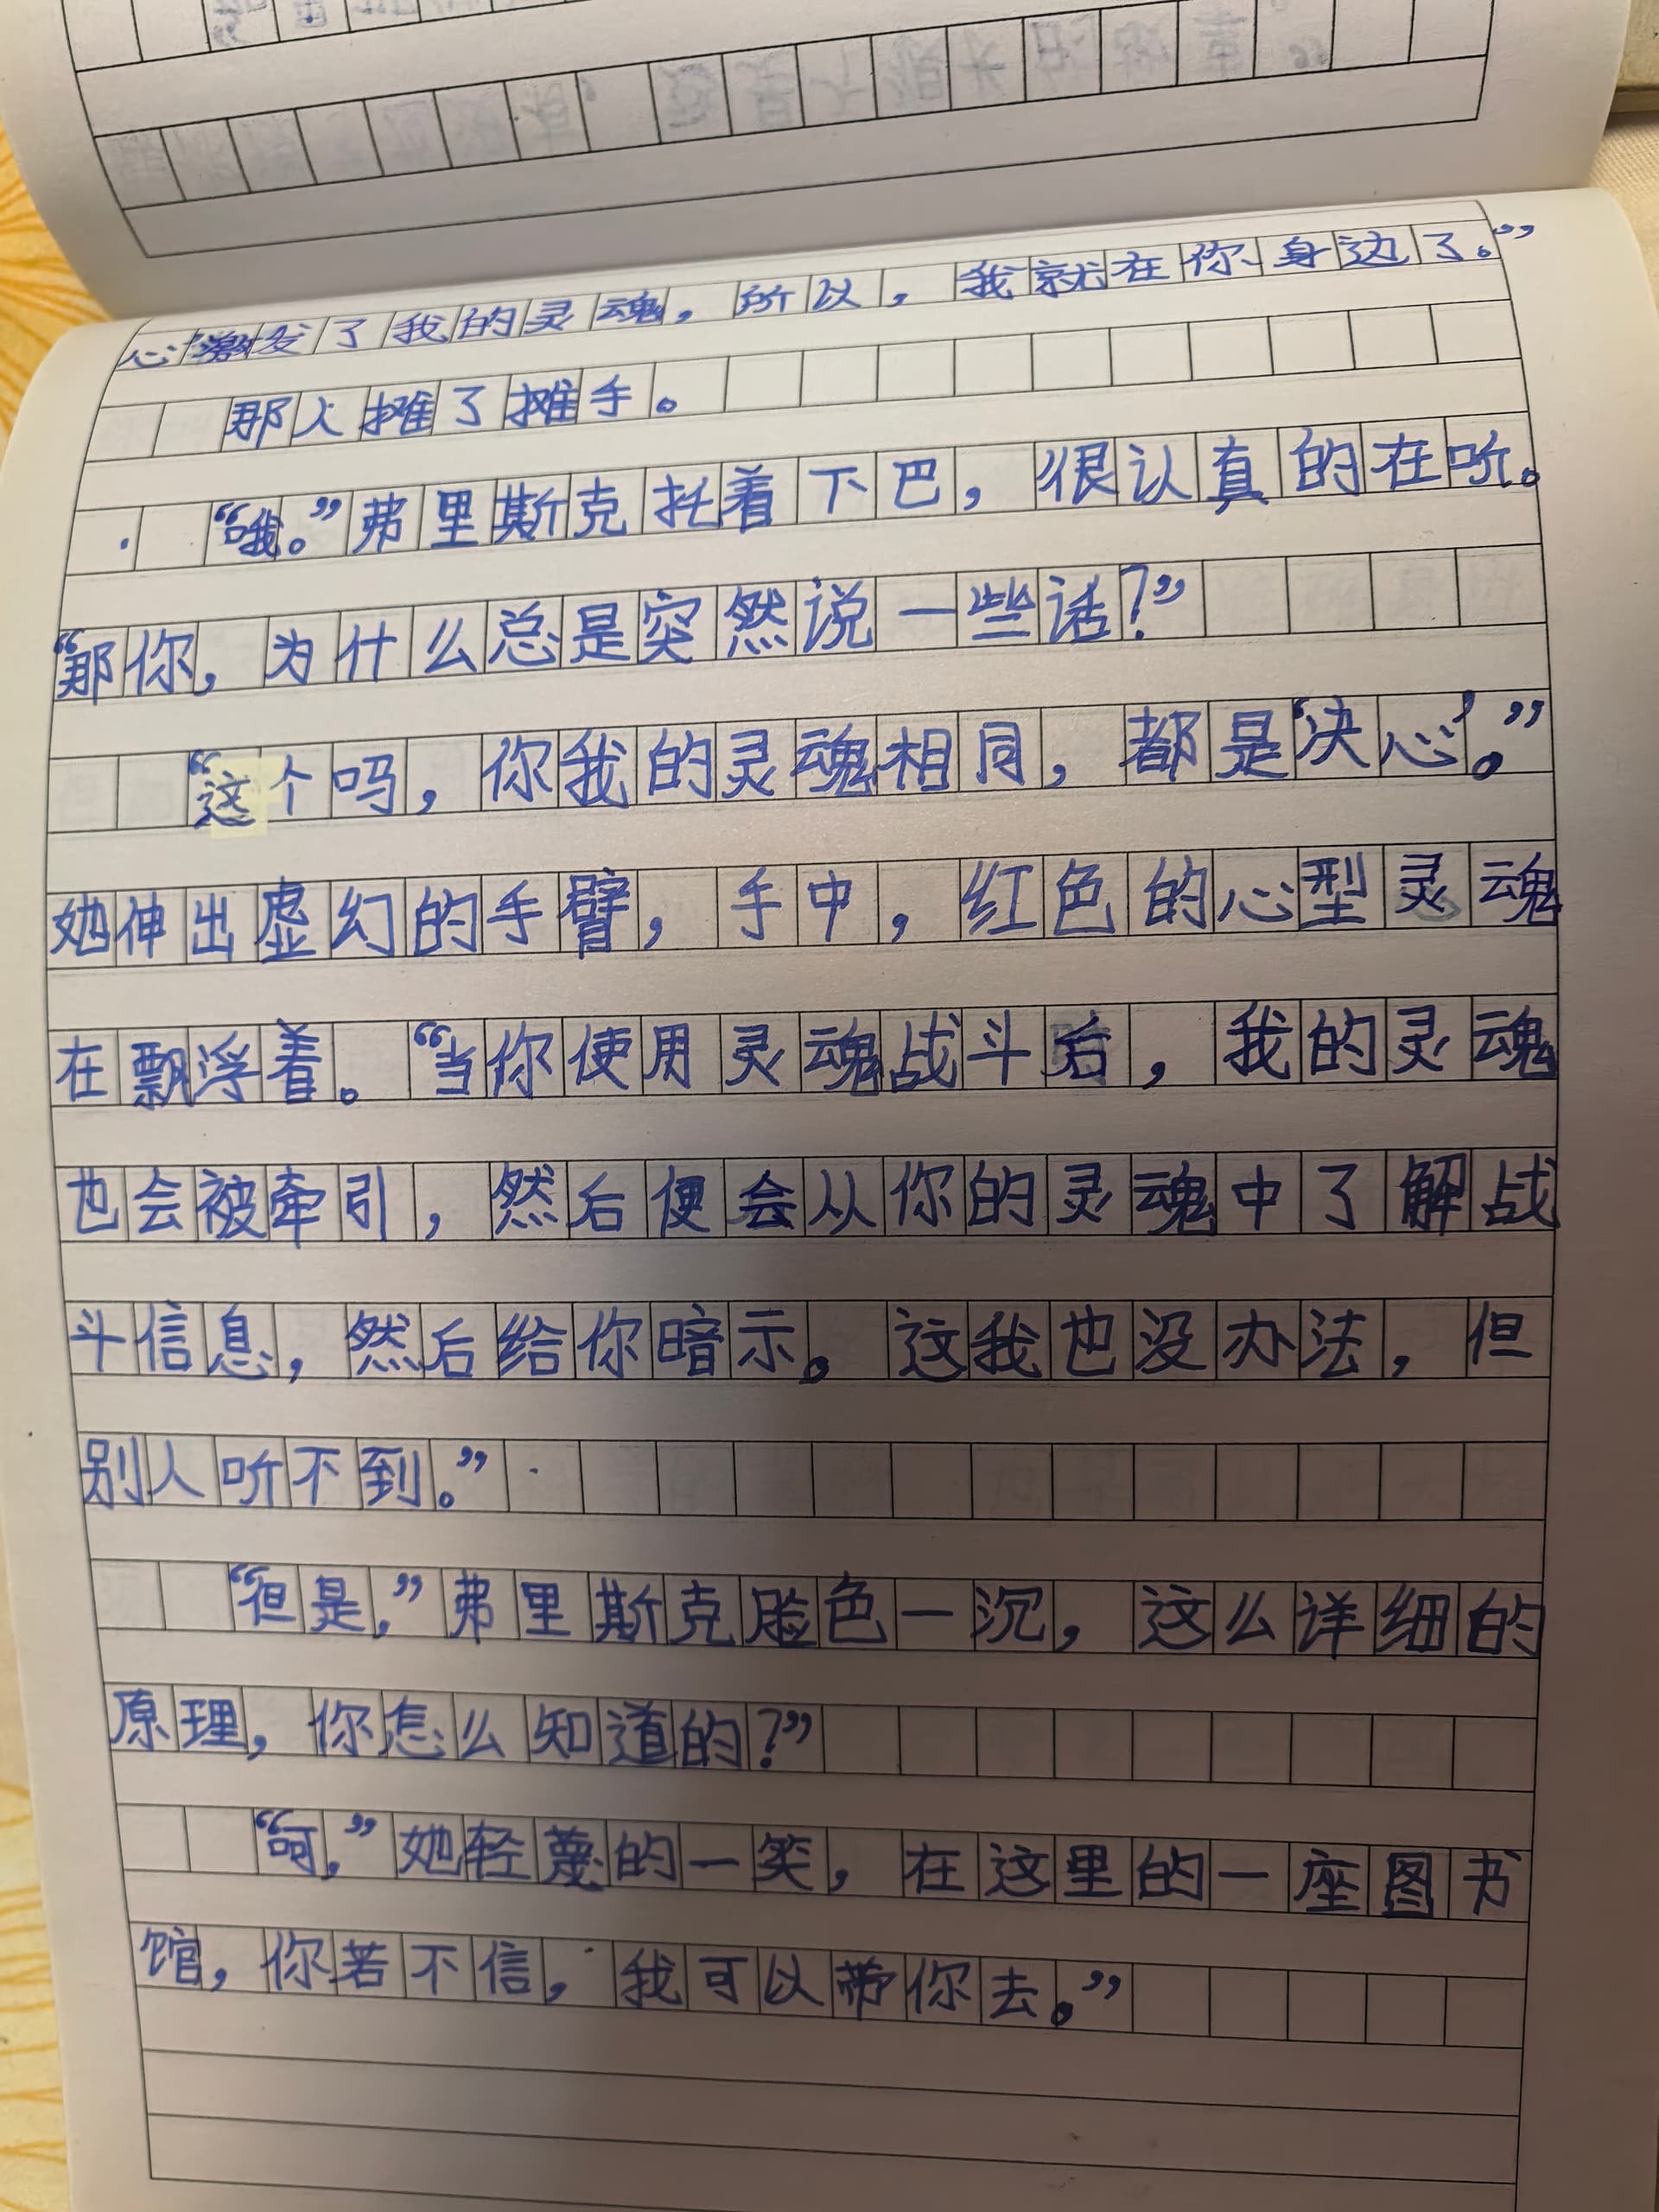 心’激发了我的灵魂，所以，我就在你身边了。”
那人摊了摊手。
“哦。”弗里斯克托着下巴，很认真的在听。
“那你，为什么总是突然说一些话？”
“这个吗，你我的灵魂相同，都是‘决心’。”
她伸出虚幻的手臂，手中，红色的心型灵魂
在飘浮着。“当你使用灵魂战斗后，我的灵魂
也会被牵引，然后便会从你的灵魂中了解战
斗信息，然后给你暗示。这我也没办法，但
别人听不到。”
“但是，”弗里斯克脸色一沉，这么详细的
原理，你怎么知道的？”
“呵，”她轻蔑的一笑，在这里的一座图书
馆，你若不信，我可以带你去。”